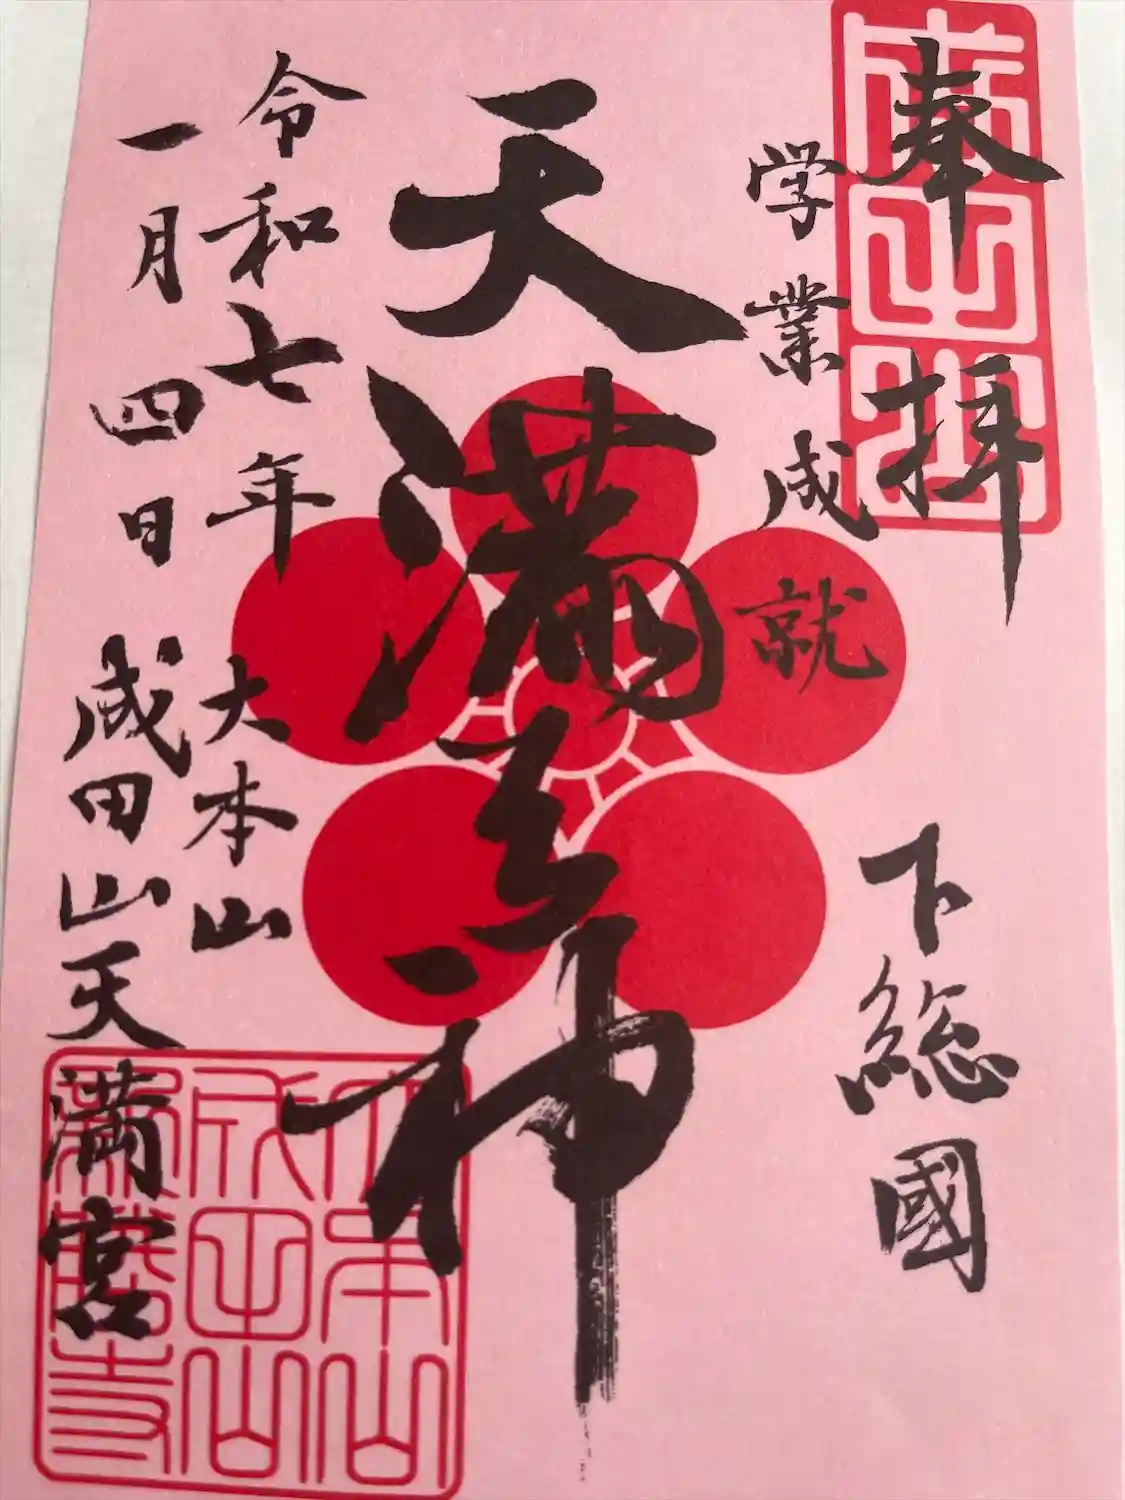 奉拝
学業成就
下総國
天満天神
令和七年
一月四日
大本山
成田山天満宮
大本山
成田山
新勝寺